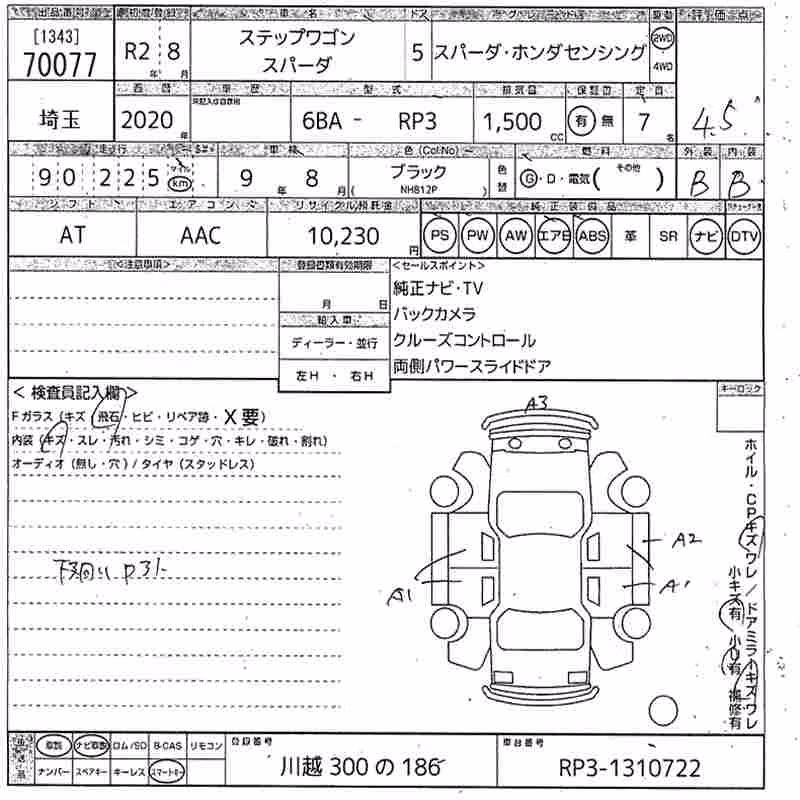 出品番号 初度登録 車名 ドア グレード 駆動 評価点
[1343]
70077
R2 年 8 月
ステップワゴン
スパーダ
5
スパーダ・ホンダセンシング
2WD
4WD
西暦 車歴 型式 排気量 保証書 定員
埼玉
2020 年
6BA - RP3
1,500 CC
有 無
7 名
4.5 点
走行 車検 色(ColNo) 燃料 外装 内装
90225 マイル km
9 年 8 月
ブラック
( NH812P )
色替
G・D・電気( その他 )
B B
シフト エアコン リサイクル預託金 純正装備品
AT
AAC
10,230 円
PS PW AW エアB ABS 革 SR ナビ DTV
<注意事項>
登録書類有効期限
月 日
輸入車
ディーラー・並行
左H ・ 右H
<セールスポイント>
純正ナビ・TV
バックカメラ
クルーズコントロール
両側パワースライドドア
< 検査員記入欄>
Fガラス (キズ・飛石・ヒビ・リペア跡・X要)
内装 (キズ・スレ・汚れ・シミ・コゲ・穴・キレ・破れ・割れ)
オーディオ (無し・穴) / タイヤ (スタッドレス)
キーロック
A3
A2
A1
A1
下回り
ホイル・CPキズワレ / ドアミラーキズワレ
小キズ有 小U有 補修有
車載 ナビ車載 ロム/SD B-CAS リモコン
ナンバー スペアキー キーレス スマートキー
登録番号
川越 300 の 186
車台番号
RP3-1310722